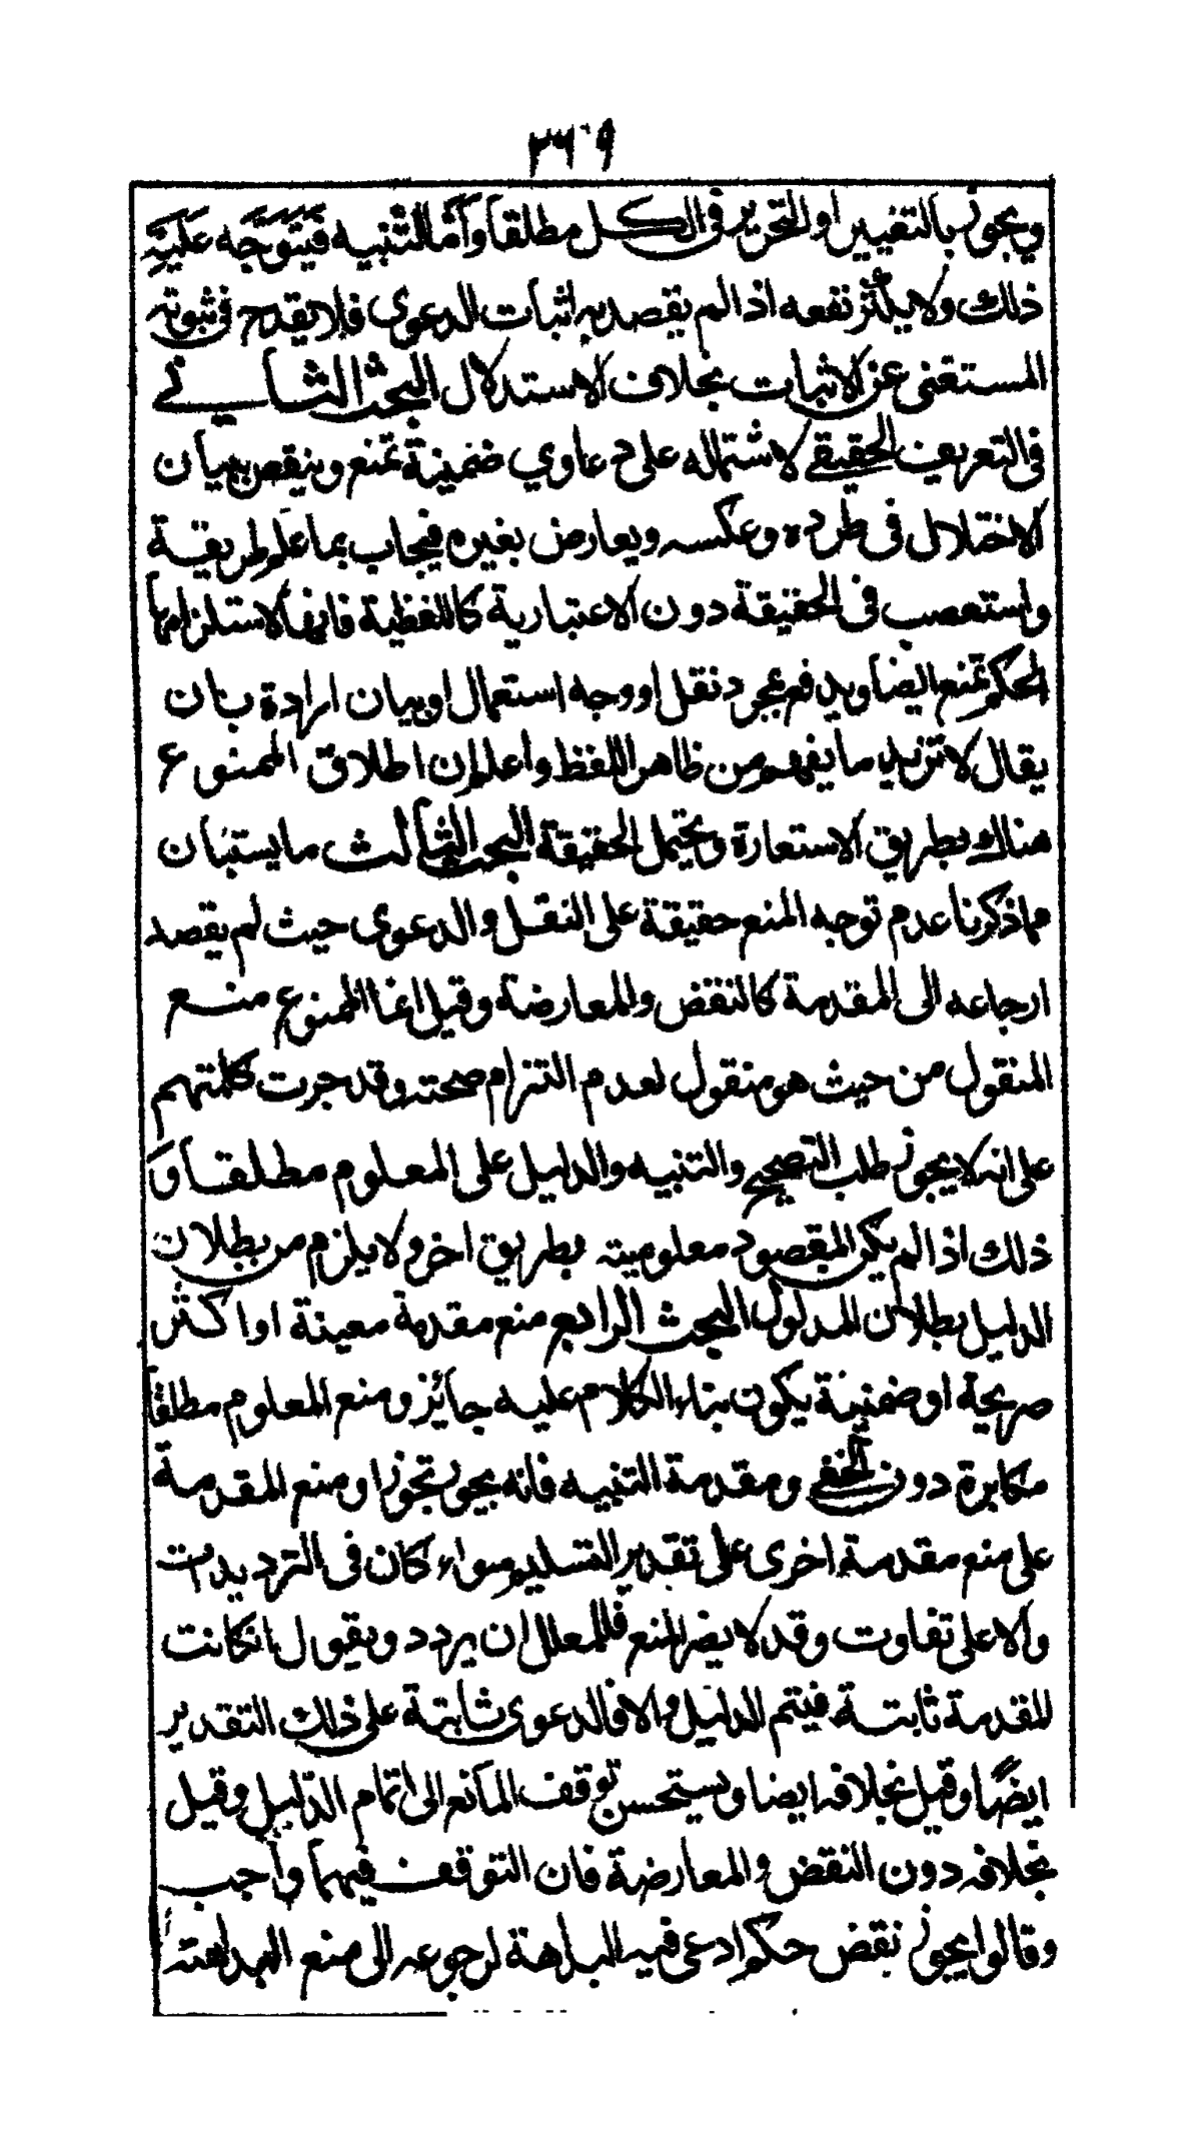 ٣٦٩
ويجوز بالتغيير او التحرير فى الكل مطلقا وأما التنبيه فيتوجه عليه
ذلك ولا يكثر نفعه اذا لم يقصد به اثبات الدعوى فلا يقدح فى ثبوته
المستغنى عن الاثبات بخلاف الاستدلال البحث الثانى
فى التعريف الحقيقى لاشتماله على دعاوي ضمنية تمنع وينقض ببيان
الاختلال فى طرده وعكسه ويعارض بغيره فيجاب بما علم طريقة
واستصعب فى الحقيقة دون الاعتبارية كاللفظية فانها لاستلزامها
الحكم تمنع ايضا ويدفع بمجرد نقل او وجه استعمال او بيان ارادة بان
يقال لا نريد ما يفهم من ظاهر اللفظ واعلم ان اطلاق الممنوع
هناك بطريق الاستعارة ويحتمل الحقيقة البحث الثالث ما يستبان
مما ذكرنا عدم توجه المنع حقيقة على النقل والدعوى حيث لم يقصد
ارجاعه الى المقدمة كالنقض والمعارضة وقيل انما الممنوع منع
المنقول من حيث هو منقول لعدم التزام صحته وقد جرت كلمتهم
على انه لا يجوز طلب التصحيح والتنبيه والدليل على المعلوم مطلقا و
ذلك اذا لم يكن المقصود معلوميته بطريق اخر ولا يلزم من بطلان
الدليل بطلان المدلول البحث الرابع منع مقدمة معينة او اكثر
صريحة او ضمنية يكون بناء الكلام عليه جائز ومنع المعلوم مطلقا
مكابرة دون الخفى ومقدمة التنبيه فانه يجوز تجوزا ومنع المقدمة
على منع مقدمة اخرى على تقدير التسليم سواء كان فى الترديدات
والا على تفاوت وقد لا يضر المنع فللمعلل ان يردد ويقول ان كانت
المقدمة ثابتة فيتم الدليل والا فالدعوى ثابتة على ذلك التقدير
ايضًا وقيل بخلافه ايضا ويستحسن توقف المانع الى اتمام الدليل وقيل
بخلافه دون النقض والمعارضة فان التوقف فيهما واجب
وقالوا يجوز نقض حكم ادعى فيه البداهة لرجوعه الى منع البداهة